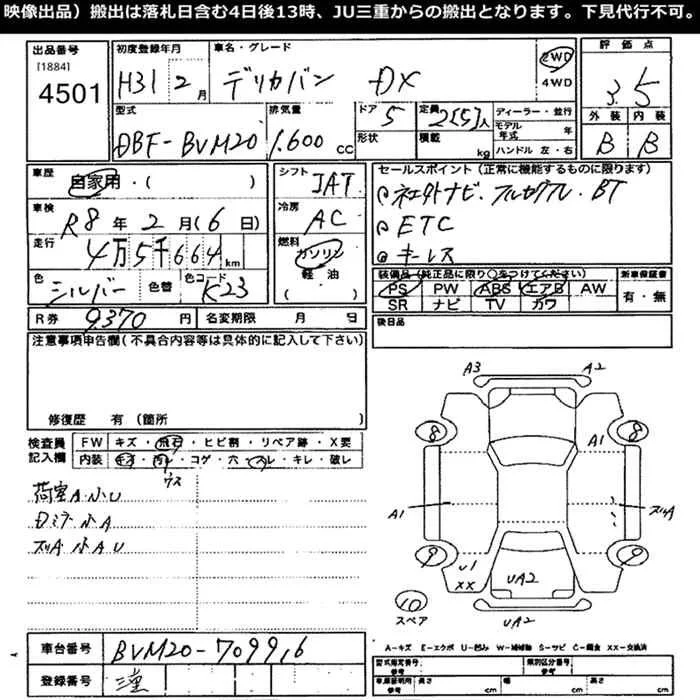 映像出品）搬出は落札日含む4日後13時、JU三重からの搬出となります。下見代行不可。
出品番号
[1884]
4501
初度登録年月
H31 2月
車名・グレード
デリカバン DX
2WD
4WD
評価点
3.5
型式
DBF-BVM20
排気量
1.600 cc
ドア
5
形状
定員
2(5)人
積載
kg
ディーラー・並行
モデル年式 年
ハンドル 左・右
外装 内装
B B
車歴
自家用・( )
車検
R8年2月(6日)
走行
4万5千664km
色
シルバー
色替
色コード
K23
シフト
IAT
冷房
AC
燃料
ガソリン
軽油
( )
セールスポイント（正常に機能するものに限ります）
社外ナビ・フルセグTV・BT
ETC
キーレス
装備品（純正品に限り○をつけてください）
PS PW ABS エアB AW
SR ナビ TV カワ
新車保証書
有・無
R券 9370円
名変期限 月 日
後日品
注意事項申告欄（不具合内容等は具体的に記入して下さい）
修復歴 有（箇所 ）
検査員記入欄
FW キズ・飛石・ヒビ割・リペア跡・X要
内装 コゲ・穴・スレ・キレ・破レ
ウス
荷室A小U
Dミラー小A
小AU
A3 A2
8 8
A1
A1
9 9
U1
XX
UA2
10
スペア
UA2
A-キズ E-エクボ U-凹み W-補修跡 S-サビ C-腐食 XX-交換済
車台番号
BVM20-709916
登録番号
三重
型式指定番号
参考
類別区分番号
参考
車庫証明用
参考
長さ cm
幅 cm
高さ cm